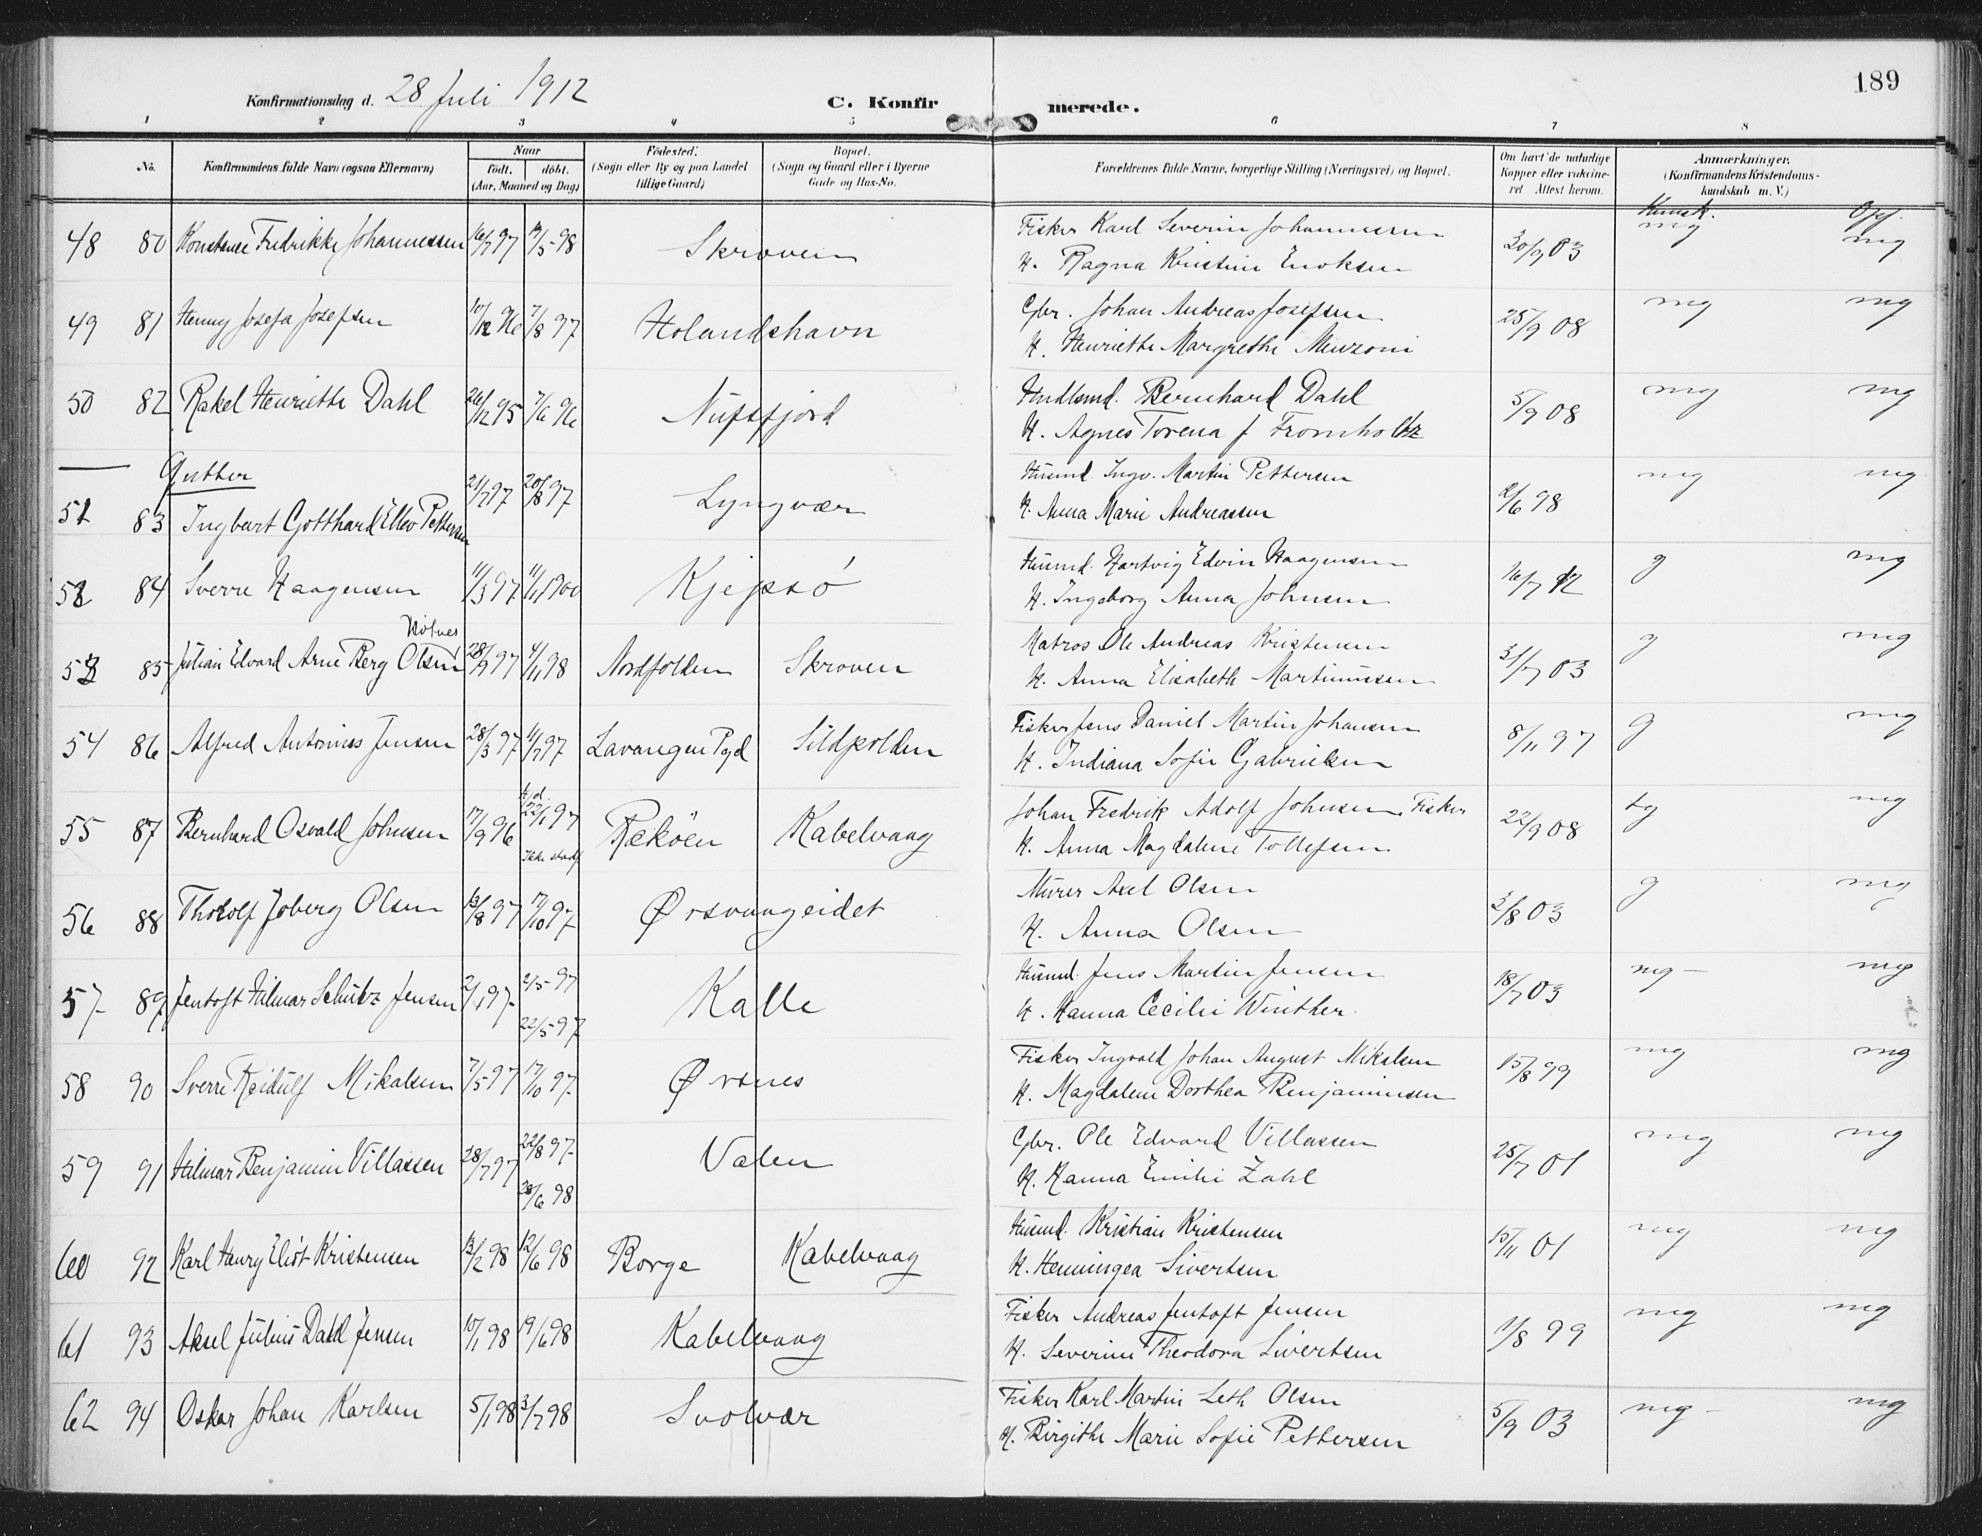 Konfirmationsdag d. 28 Juli 1912
C. Konfirmerede.
189
1 2 3 4 5 6 7 8
No. Konfirmandens fulde Navn (ogsaa Efternavn) Naar født. døbt. (Aar, Maaned og Dag) Fødested. (Sogn eller By og paa Landet tillige Gaard) Bopæl. (Sogn og Gaard eller i Byerne Gade og Hus-No. Forældrenes fulde Navne, borgerlige Stilling (Næringsvei) og Bopæl. Om havt de naturlige Kopper eller vaccineret Attest herom. Anmærkninger. (Konfirmandens Kristendomskundskab m. V.)
Kunsk. Opf.
48 80 Konstanse Fredrikke Johannessen 16/7 97 /5 98 Skroven Fisker Karl Severin Johannessen 30/9 03 mg mg
H. Ragna Kristine Enoksen
49 81 Henny Josefa Josefsen 10/12 96 7/8 97 Holandshavn Gbr. Johan Andreas Josefsen 25/9 08 mg mg
H. Henriette Margrethe Meuzoni
50 82 Rakel Henriette Dahl 26/12 95 7/6 96 Nufsfjord Handlsmd. Bernhard Dahl 5/9 08 mg mg
H. Agnes Torena f Fromholtz
Gutter
51 83 Ingbart Gotthard Ellev Pettersen 21/7 97 20/8 97 Lyngvær Husmd. Ingv. Martin Pettersen 2/6 98 mg mg
H. Anna Marie Andreassen
52 84 Sverre Haagensen 11/3 97 11/1 1900 Kjepsø Husmd. Hartvig Edvin Haagensen 16/7 12 g mg
H. Ingeborg Anna Johnsen
Hotnes
53 85 Julian Edvard Arne Berg Olsen 28/9 97 4/1 98 Nordfolden Skroven Matros Ole Andreas Kristensen 31/7 03 g mg
H. Anna Elisabeth Martinussen
54 86 Alfred Antonius Jensen 28/3 97 11/7 97 Lavangen Pgd Sildpolden Fisker Jens Daniel Martin Johansen 8/11 97 g mg
H. Indiana Sofie Gabrielsen
55 87 Bernhard Osvald Johnsen 17/9 96 hjd. 22/1 97 Ikke stadf Rekøen Kabelvaag Johan Fredrik Adolf Johnsen Fisker 22/9 08 tg mg
H. Anna Magdalene Tollefsen
56 88 Thorolf Joberg Olsen 13/8 97 17/10 97 Ørsvaageidet Murer Axel Olsen 3/8 03 g mg
H. Anna Olsen
57 89 Jentoft Hilmar Schultz Jensen 2/1 97 2/5 97 22/5 97 Kalle Husmd. Jens Martin Jensen 18/7 03 mg mg
H. Hanna Cecilie Winther
58 90 Sverre Reidulf Mikalsen 7/5 97 17/10 97 Ørsnes Fisker Ingvald Johan August Mikalsen 15/8 99 mg mg
H. Magdalene Dorthea Benjaminsen
59 91 Hilmar Benjamin Villassen 28/7 97 22/8 97 /6 98 Valen Gbr. Ole Edvard Villassen 25/7 01 mg mg
H. Hanna Emilie Zahl
60 92 Karl Henry Eliot Kristensen 13/2 98 12/6 98 Borge Kabelvaag Husmd. Kristian Kristensen 15/11 01 mg mg
H. Henningea Sivertsen
61 93 Aksel Julius Dahl Jensen 10/1 98 19/6 98 Kabelvaag Fisker Andreas Jentoft Jensen /8 99 mg mg
H. Severine Theodora Sivertsen
62 94 Oskar Johan Karlsen 5/1 98 3/7 98 Svolvær Fisker Karl Martin Leth Olsen 5/9 03 mg mg
H. Birgithe Marie Sofie Pettersen